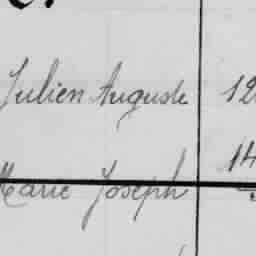 Julien Auguste 12
14
Marie Joseph